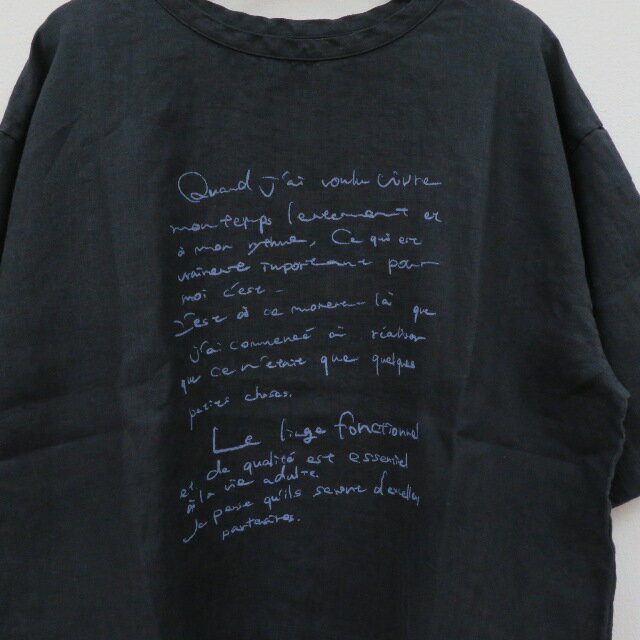 Quand j'ai voulu vivre
mon temps lentement et
à mon rythme, Ce qui est
vraiment important pour
moi c'est
C'est à ce moment là que
j'ai commencé à réaliser
que ce n'était que quelques
petites choses.
Le linge fonctionnel
et de qualité est essentiel
à la vie adulte
je pense qu'ils seront d'excellents
partenaires.